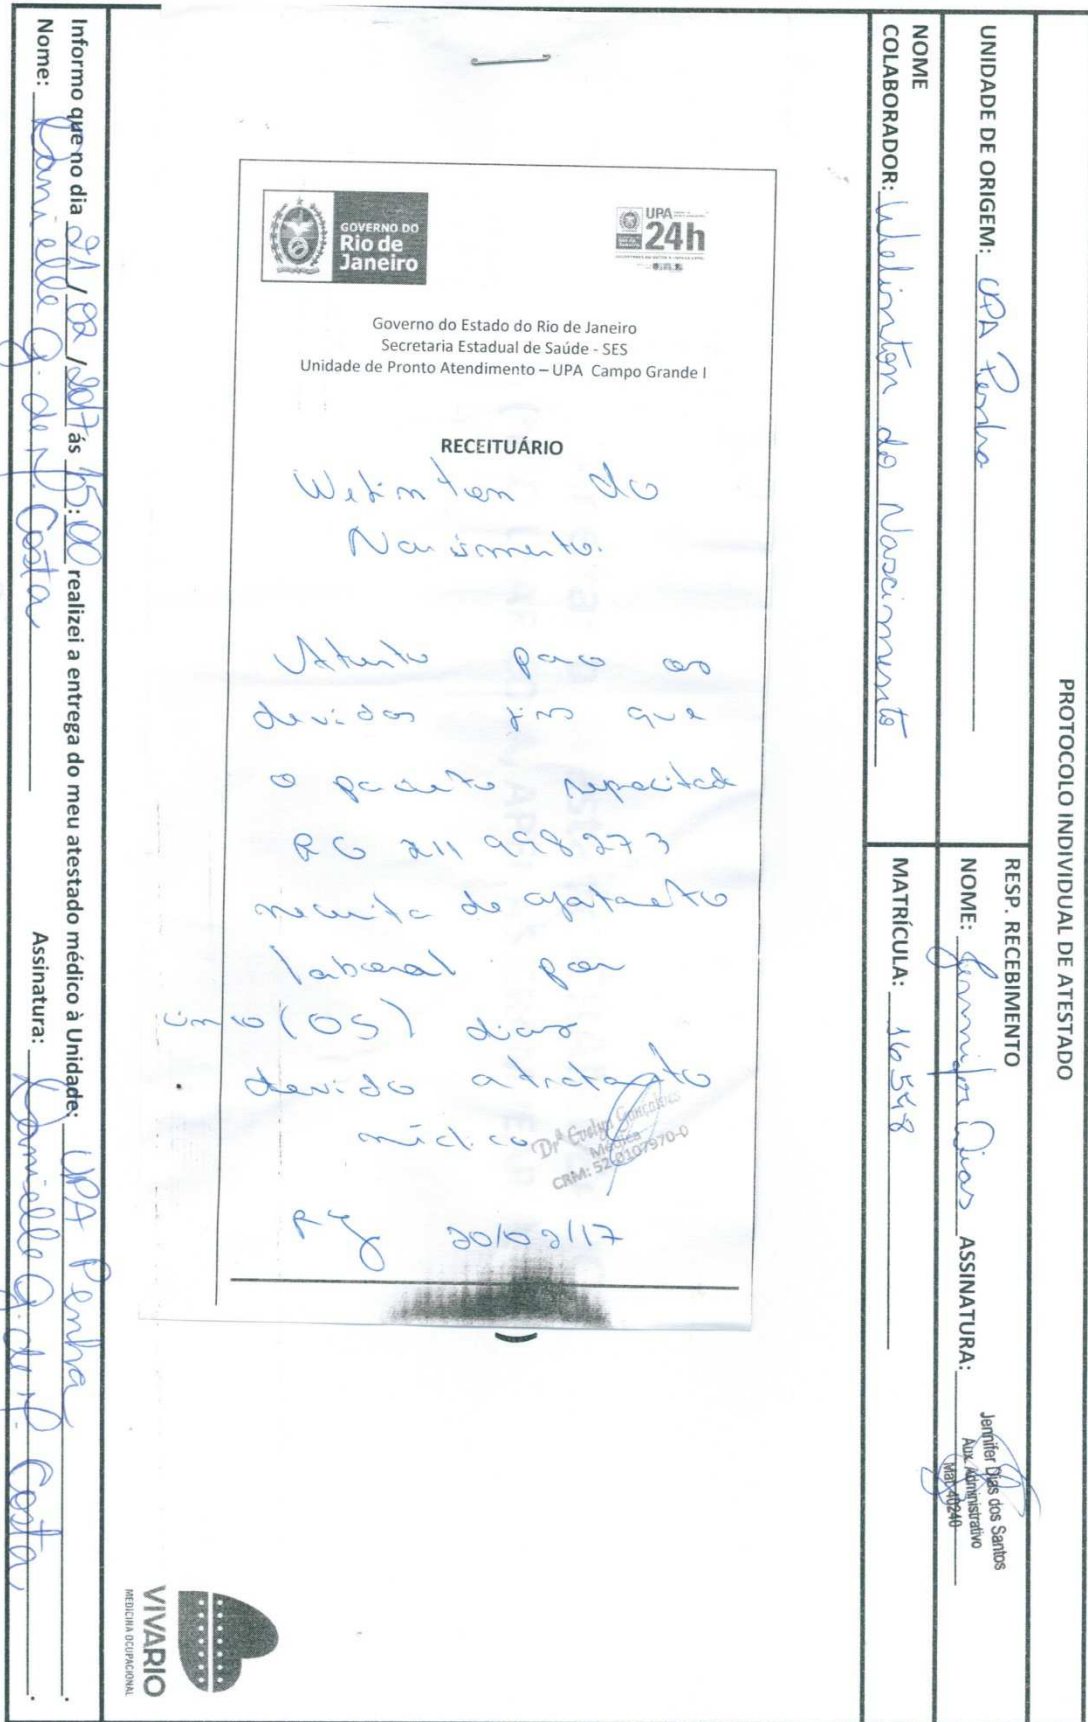 PROTOCOLO INDIVIDUAL DE ATESTADO
UNIDADE DE ORIGEM: UPA Penha
RESP. RECEBIMENTO
NOME: Jennifer Dias ASSINATURA:
Jennifer Dias dos Santos
Aux. Administrativo
Mat: 40240
NOME
COLABORADOR: Whelinnton do Nascimento
MATRÍCULA: 16548
GOVERNO DO
Rio de
Janeiro
UPA
24h
Governo do Estado do Rio de Janeiro
Secretaria Estadual de Saúde - SES
Unidade de Pronto Atendimento – UPA Campo Grande I
RECEITUÁRIO
Welinton do
Nascimento.
Atesto para os
devidos fins que
o paciente supracitado
RG 211998273
necessita de afastamento
laboral por
cinco (05) dias
devido a tratamento
médico
Drª Evelyn Gonçalves
Médica
CRM: 52-0107970-0
RJ 20/02/17
VIVARIO
MEDICINA OCUPACIONAL
Informo que no dia 21/02/2017 ás 15:00 realizei a entrega do meu atestado médico à Unidade: UPA Penha.
Nome: Danielle G. de N. Costa Assinatura: Danielle G. de N. Costa.